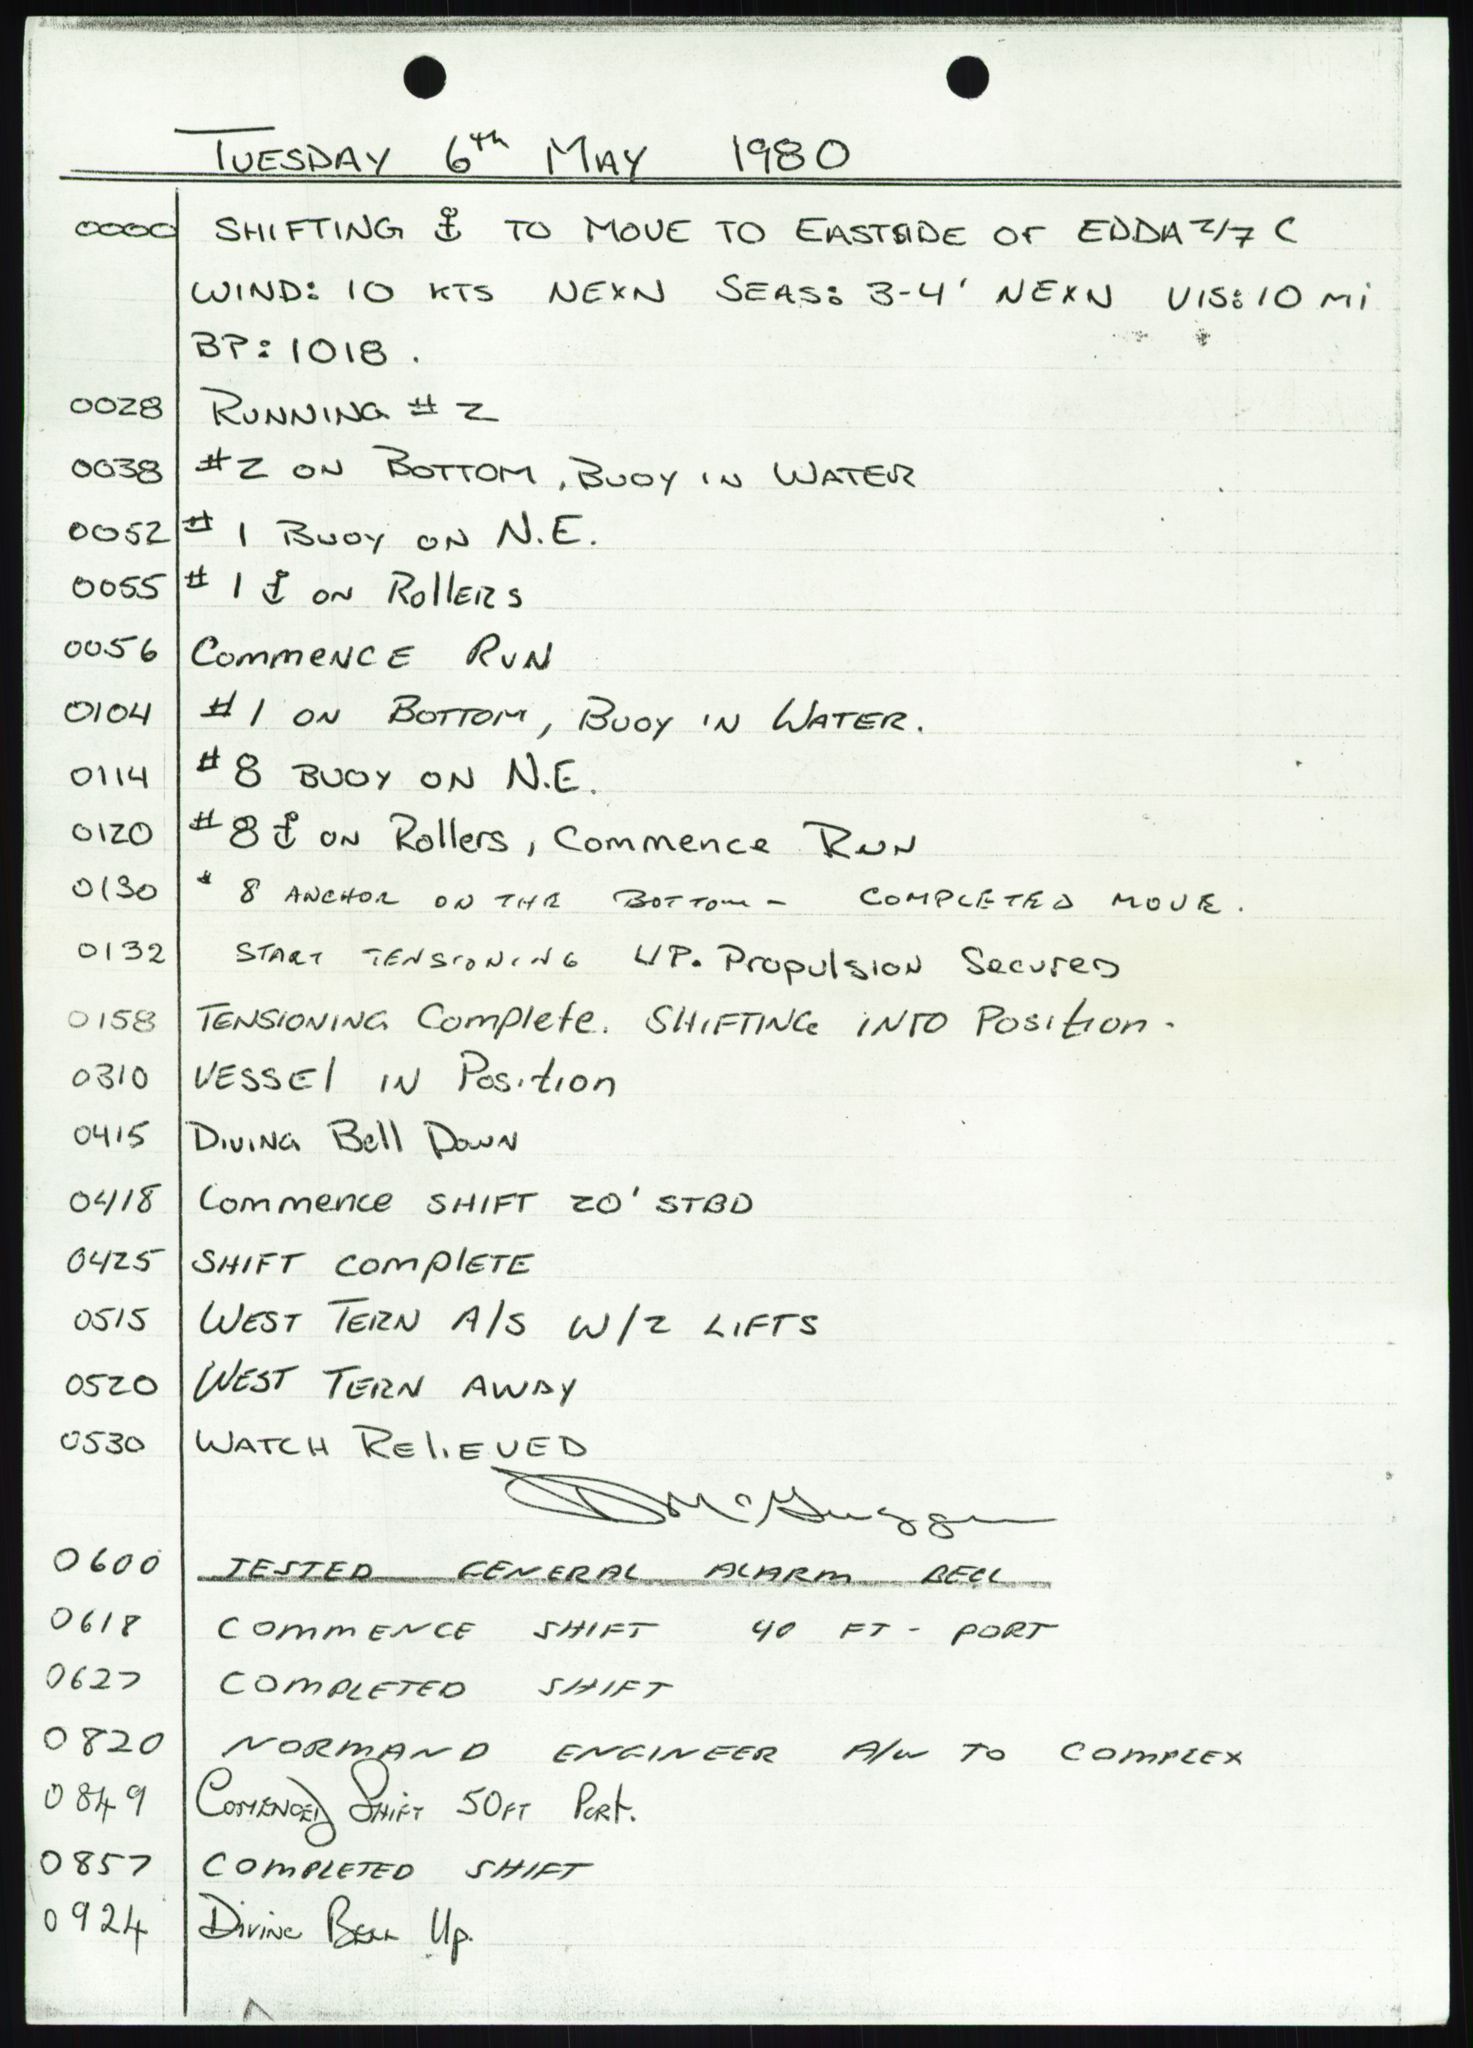 TUESDAY 6th MAY 1980
0000 SHIFTING ⚓ TO MOVE TO EASTSIDE OF EDDA 2/7 C
WIND: 10 KTS NEXN SEAS: 3-4' NEXN VIS: 10 Mi
BP: 1018.
0028 RUNNING # 2
0038 #2 ON BOTTOM, BUOY IN WATER
0052 # 1 BUOY ON N.E.
0055 # 1 ⚓ ON ROllERS
0056 COMMENCE RUN
0104 #1 ON BOTTOM, BUOY IN WATER.
0114 #8 BUOY ON N.E.
0120 #8 ⚓ ON Rollers, Commence RUN
0130 # 8 ANCHOR ON THE BOTTOM - COMPLETED MOVE.
0132 START TENSIONING UP. Propulsion Secured
0158 TENSIONING Complete. SHIFTING INTO Position.
0310 VESSEl IN Position
0415 DIVING Bell DOWN
0418 Commence SHIFT 20' STBD
0425 SHIFT COMPLETE
0515 WEST TERN A/S W/2 LIFTS
0520 WEST TERN AWAY
0530 WATCH RELIEVED
0600 TESTED GENERAL ALARM BELL
0618 COMMENCE SHIFT 40 FT - PORT
0627 COMPLETED SHIFT
0820 NORMAND ENGINEER A/W TO COMPLEX
0849 COMENCED SHIFT 50FT PORT.
0857 COMPLETED SHIFT
0924 DIVING BELL Up.